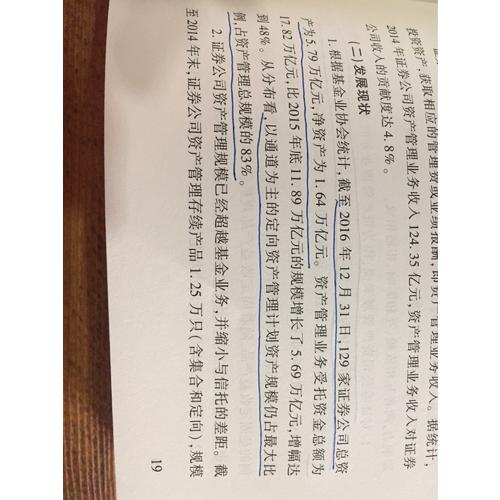 投资资产 获取相应的管理费或业绩报酬,即资产管理业务收入。据统计,
2014年证券公司资产管理业务收入124.35亿元,资产管理业务收入对证券
公司收入的贡献度达4.8%。
(二)发展现状
1. 根据基金业协会统计,截至2016年12月31日,129家证券公司总资
产为5.79万亿元,净资产为1.64万亿元。资产管理业务受托资金总额为
17.82万亿元,比2015年底11.89万亿元的规模增长了5.69万亿元,增幅达
到48%。从分布看,以通道为主的定向资产管理计划资产规模仍占最大比
例,占资产管理总规模的83%。
2. 证券公司资产管理规模已经超越基金业务,并缩小与信托的差距。截
至2014年末,证券公司资产管理存续产品1.25万只(含集合和定向),规模
19